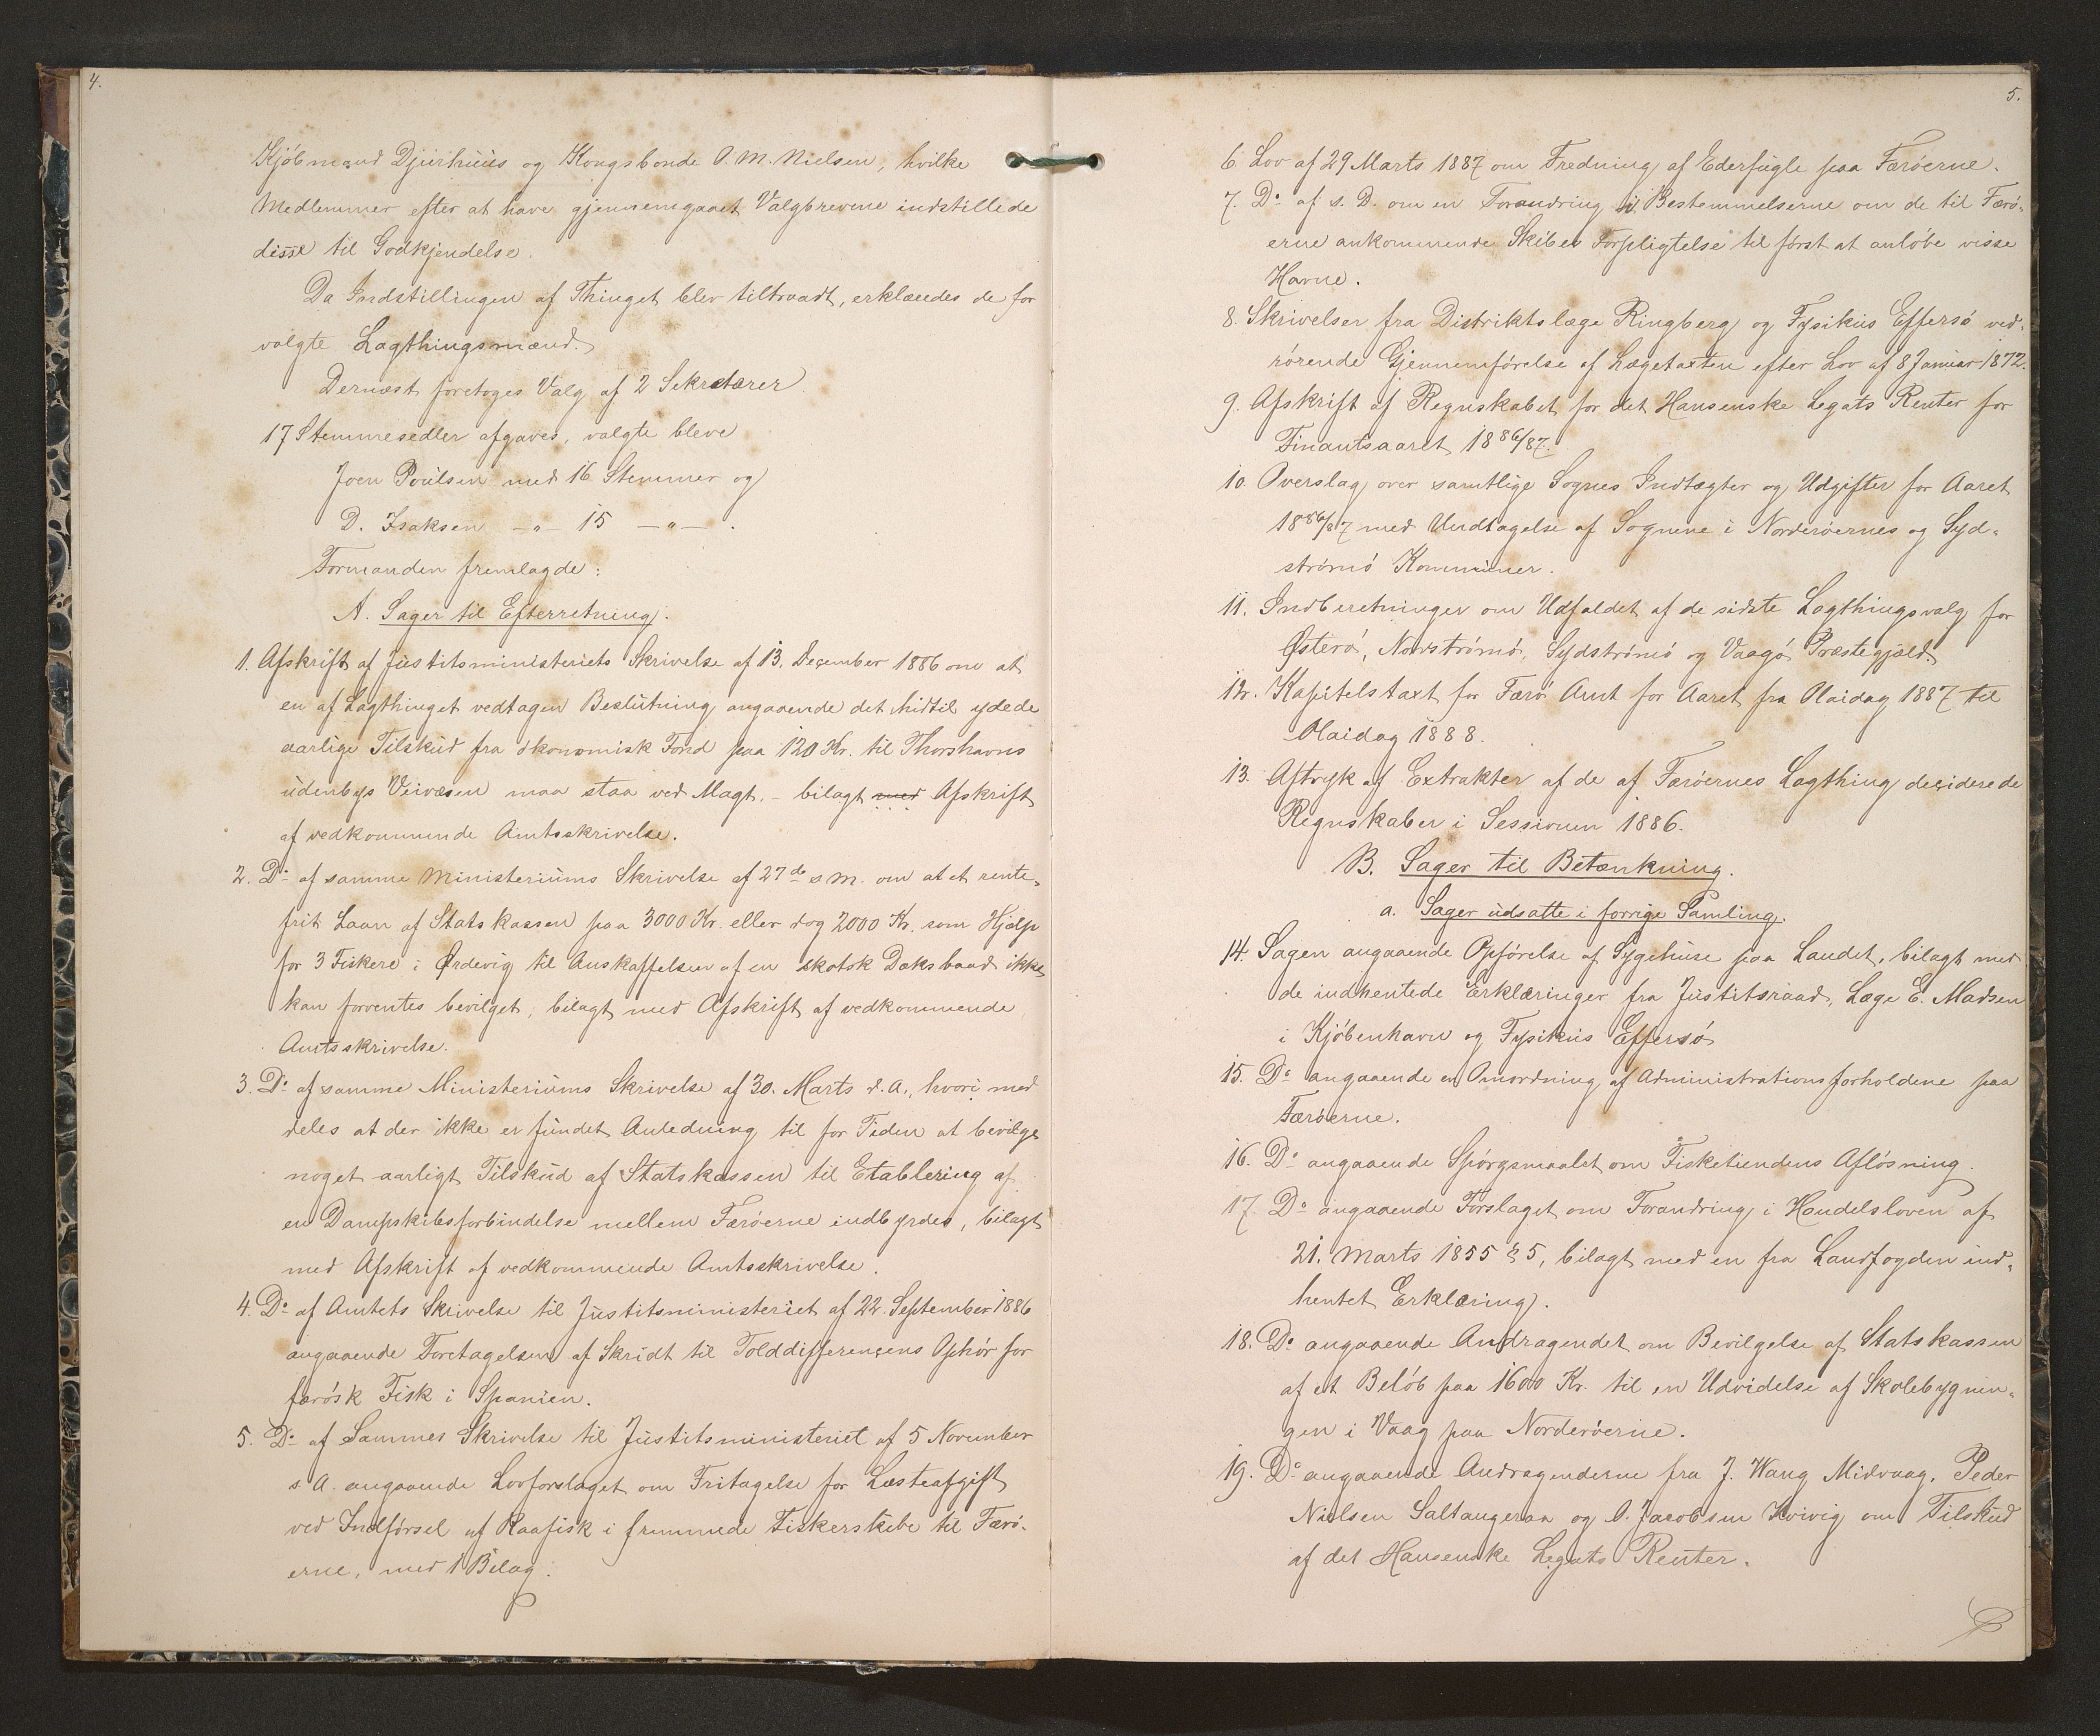 4.
Kjöbmand Djurhuus og Kongsbonde O. M. Nielsen, hvilke
Medlemmer efter at have gjennemgaaet Valgbrevene indstillede
disse til Godkjendelse.
Da Indstillingen af Thinget blev tiltraadt, erklæredes de for
valgte Lagthingsmænd.
Dernæst foretoges Valg af 2 Sekretærer
17 Stemmesedler afgaves, valgte bleve
Joen Poulsen med 16 Stemmer og
D. Isaksen —"— 15 —"— .
Formanden fremlagde:
A. Sager til Efterretning.
1. Afskrift af Justitsministeriets Skrivelse af 13. December 1886 om at
en af Lagthinget vedtagen Beslutning angaaende det hidtil ydede
aarlige Tilskud fra ökonomisk Fond paa 120 Kr. til Thorshavns
udenbys Veivæsen maa staa ved Magt, - bilagt med Afskrift
af vedkommende Amtsskrivelse.
2. Do af samme Ministeriums Skrivelse af 27de s. M. om at et rente-
frit Laan af Statskassen paa 3000 Kr. eller dog 2000 Kr. som Hjælp
for 3 Fiskere i Ørdevig til Anskaffelsen af en skotsk Dæksbaad ikke
kan forventes bevilget; bilagt med Afskrift af vedkommende
Amtsskrivelse.
3. Do af samme Ministeriums Skrivelse af 30. Marts d. A., hvori med
deles at der ikke er fundet Anledning til for Tiden at bevilge
noget aarligt Tilskud af Statskassen til Etablering af
en Dampskibsforbindelse mellem Færöerne indbyrdes, bilagt
med Afskrift af vedkommende Amtsskrivelse.
4. Do af Amtets Skrivelse til Justitsministeriet af 22. September 1886
angaaende Foretagelsen af Skridt til Tolddifferencens Ophör for
færösk Fisk i Spanien.
5. Do af Sammes Skrivelse til Justitsministeriet af 5 November
s. A. angaaende Lovforslaget om Fritagelse for Læsteafgift
ved Indförsel af Raafisk i fremmede Fiskerskibe til Færö-
erne, med 1 Bilag.
5.
6. Lov af 29 Marts 1887 om Fredning af Ederfugle paa Færöerne.
7. Do af s. D. om en Forandring i Bestemmelserne om de til Færö-
erne ankommende Skibes Forpligtelse til först at anlöbe visse
Havne.
8. Skrivelser fra Distriktslæge Ringberg og Fysikus Effersö ved-
rörende Gjennemförelse af Lægetaxten efter Lov af 8 Januar 1872.
9. Afskrift af Regnskabet for det Hansenske Legats Renter for
Finantsaaret 1886/87.
10. Overslag over samtlige Sognes Indtægter og Udgifter for Aaret
1886/87 med Undtagelse af Sognene i Norderöernes og Syd-
strömö Kommuner.
11. Indberetninger om Udfaldet af de sidste Lagthingsvalg for
Østerö, Nordströmö, Sydströmö og Vaagö Præstegjæld.
12. Kapitelstaxt for Færö Amt for Aaret fra Olaidag 1887 til
Olaidag 1888.
13. Aftryk af Extrakter af de af Færöernes Lagthing deciderede
Regnskaber i Sessionen 1886.
B. Sager til Betænkning.
a. Sager udsatte i forrige Samling.
14. Sagen angaaende Opförelse af Sygehuse paa Landet, bilagt med
de indhentede Erklæringer fra Justitsraad, Læge E. Madsen
i Kjöbenhavn og Fysikus Effersö
15. Do angaaende en Omordning af Administrationsforholdene paa
Færöerne.
16. Do angaaende Spörgsmaalet om Fisketiendens Aflösning.
17. Do angaaende Forslaget om Forandring i Handelsloven af
21. Marts 1855 § 5, bilagt med en fra Landfogden ind-
hentet Erklæring.
18. Do angaaende Andragendet om Bevilgelse af Statskassen
af et Belöb paa 1600 Kr. til en Udvidelse af Skolebygnin-
gen i Vaag paa Norderöerne.
19. Do angaaende Andragenderne fra J. Wang Midvaag, Peder
Nielsen Saltangeraa og O. Jacobsen Kvivig om Tilskud
af det Hansenske Legats Renter.